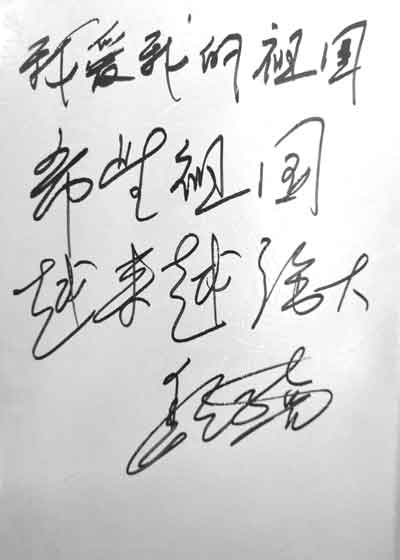 我爱我的祖国
希望祖国
越来越强大